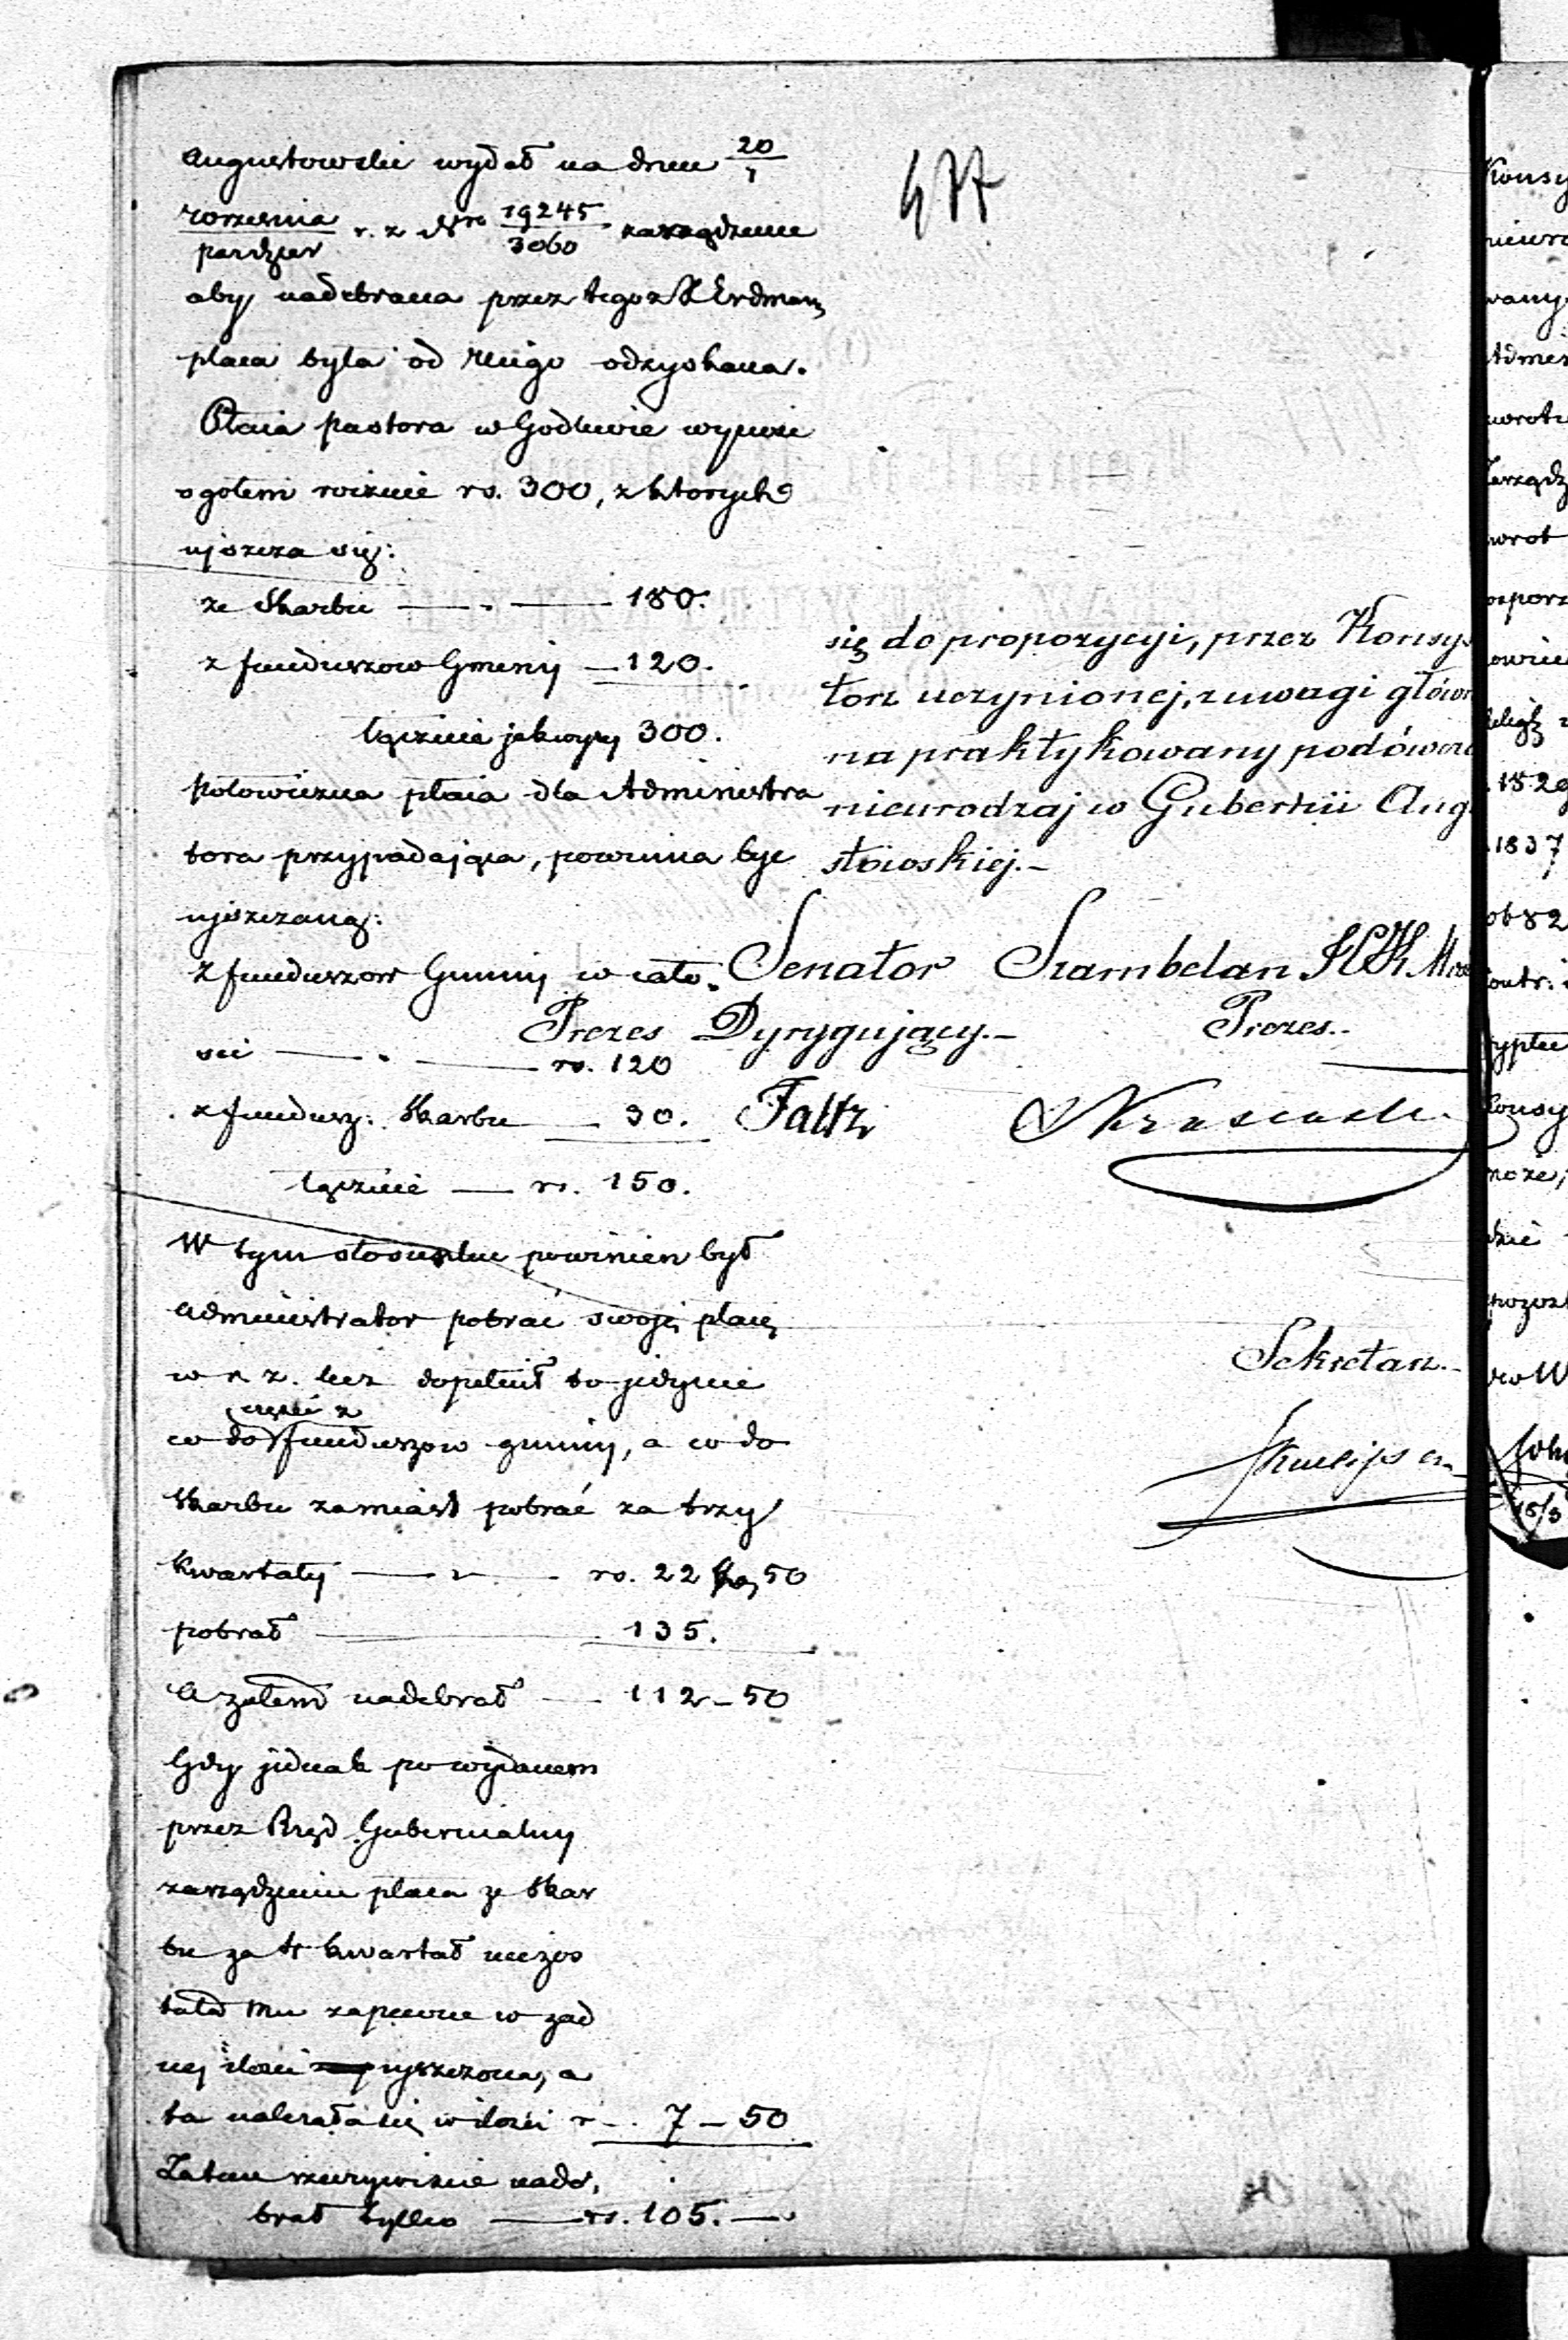 477
Augustowski wydał na dniu 20/1
wrzesnia/pazdzier r. z. Nro 19245/3060 zarządzenie
aby nadebrana przez tegoz X Erdmann
płaca była od niego odzyskana.
Płaca pastora w Godlewie wynosi
ogołem rocznie rs. 300, z ktorych
ujszcza się:
ze Skarbu — 180.
z funduszow Gminy — 120.
łącznie jak wyzej 300.
Połowiczna płaca dla Administra
tora przypadająca, powinna byc
ujszczaną:
z funduszow Gminy w cało-
sci — rs. 120
z fundusz: Skarbu — 30.
łącznie — rs. 150.
W tym stosunku powinien był
Administrator pobrać swoję płacę
w r. z. lecz dopełnił to jedynie
części z
co do funduszow gminy, a co do
Skarbu zamiast pobrać za trzy
kwartały — rs. 22 k. 50
pobrał — 135.
A zatem nadebrał — 112 - 50
Gdy jednak po wydanem
przez Rząd Gubernialny
zarządzeniu płaca ze Skar
bu za 4 kwartał niezos
tała mu zapewne w zad
nej ilosci ujszczona, a
ta należała się w ilosci r — 7 - 50
Zatem rzeczywiscie nade-
brał tylko — rs. 105. —
się do propozycyi, przez Konsys
torz uczynionej, z uwagi głów
na praktykowany podówcza
nieurodzaj w Gubernii Aug
stowskiej.-
Senator Szambelan
Prezes Dyrygujący.- Prezes.-
Faltz
Sekretarz.-